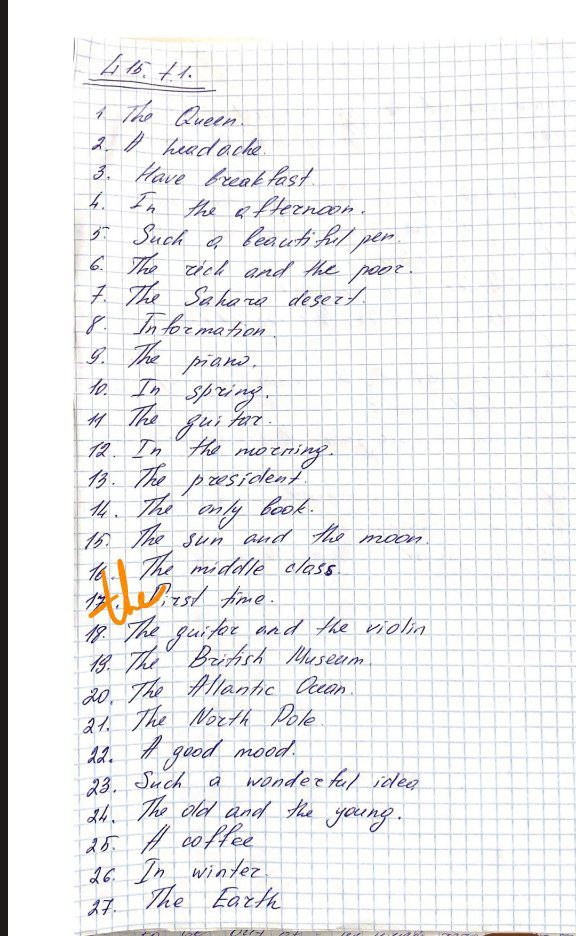 415. t1.
1 The Queen.
2. A headache.
3. Have breakfast.
4. In the afternoon.
5. Such a beautiful pen.
6. The rich and the poor.
7. The Sahara desert.
8. Information.
9. The piano.
10. In spring.
11 The guitar.
12. In the morning.
13. The president.
14. The only book.
15. The sun and the moon.
16. The middle class.
17. the First time.
18. The guitar and the violin
19. The British Museum.
20. The Atlantic Ocean.
21. The North Pole.
22. A good mood.
23. Such a wonderful idea
24. The old and the young.
25. A coffee
26. In winter.
27. The Earth